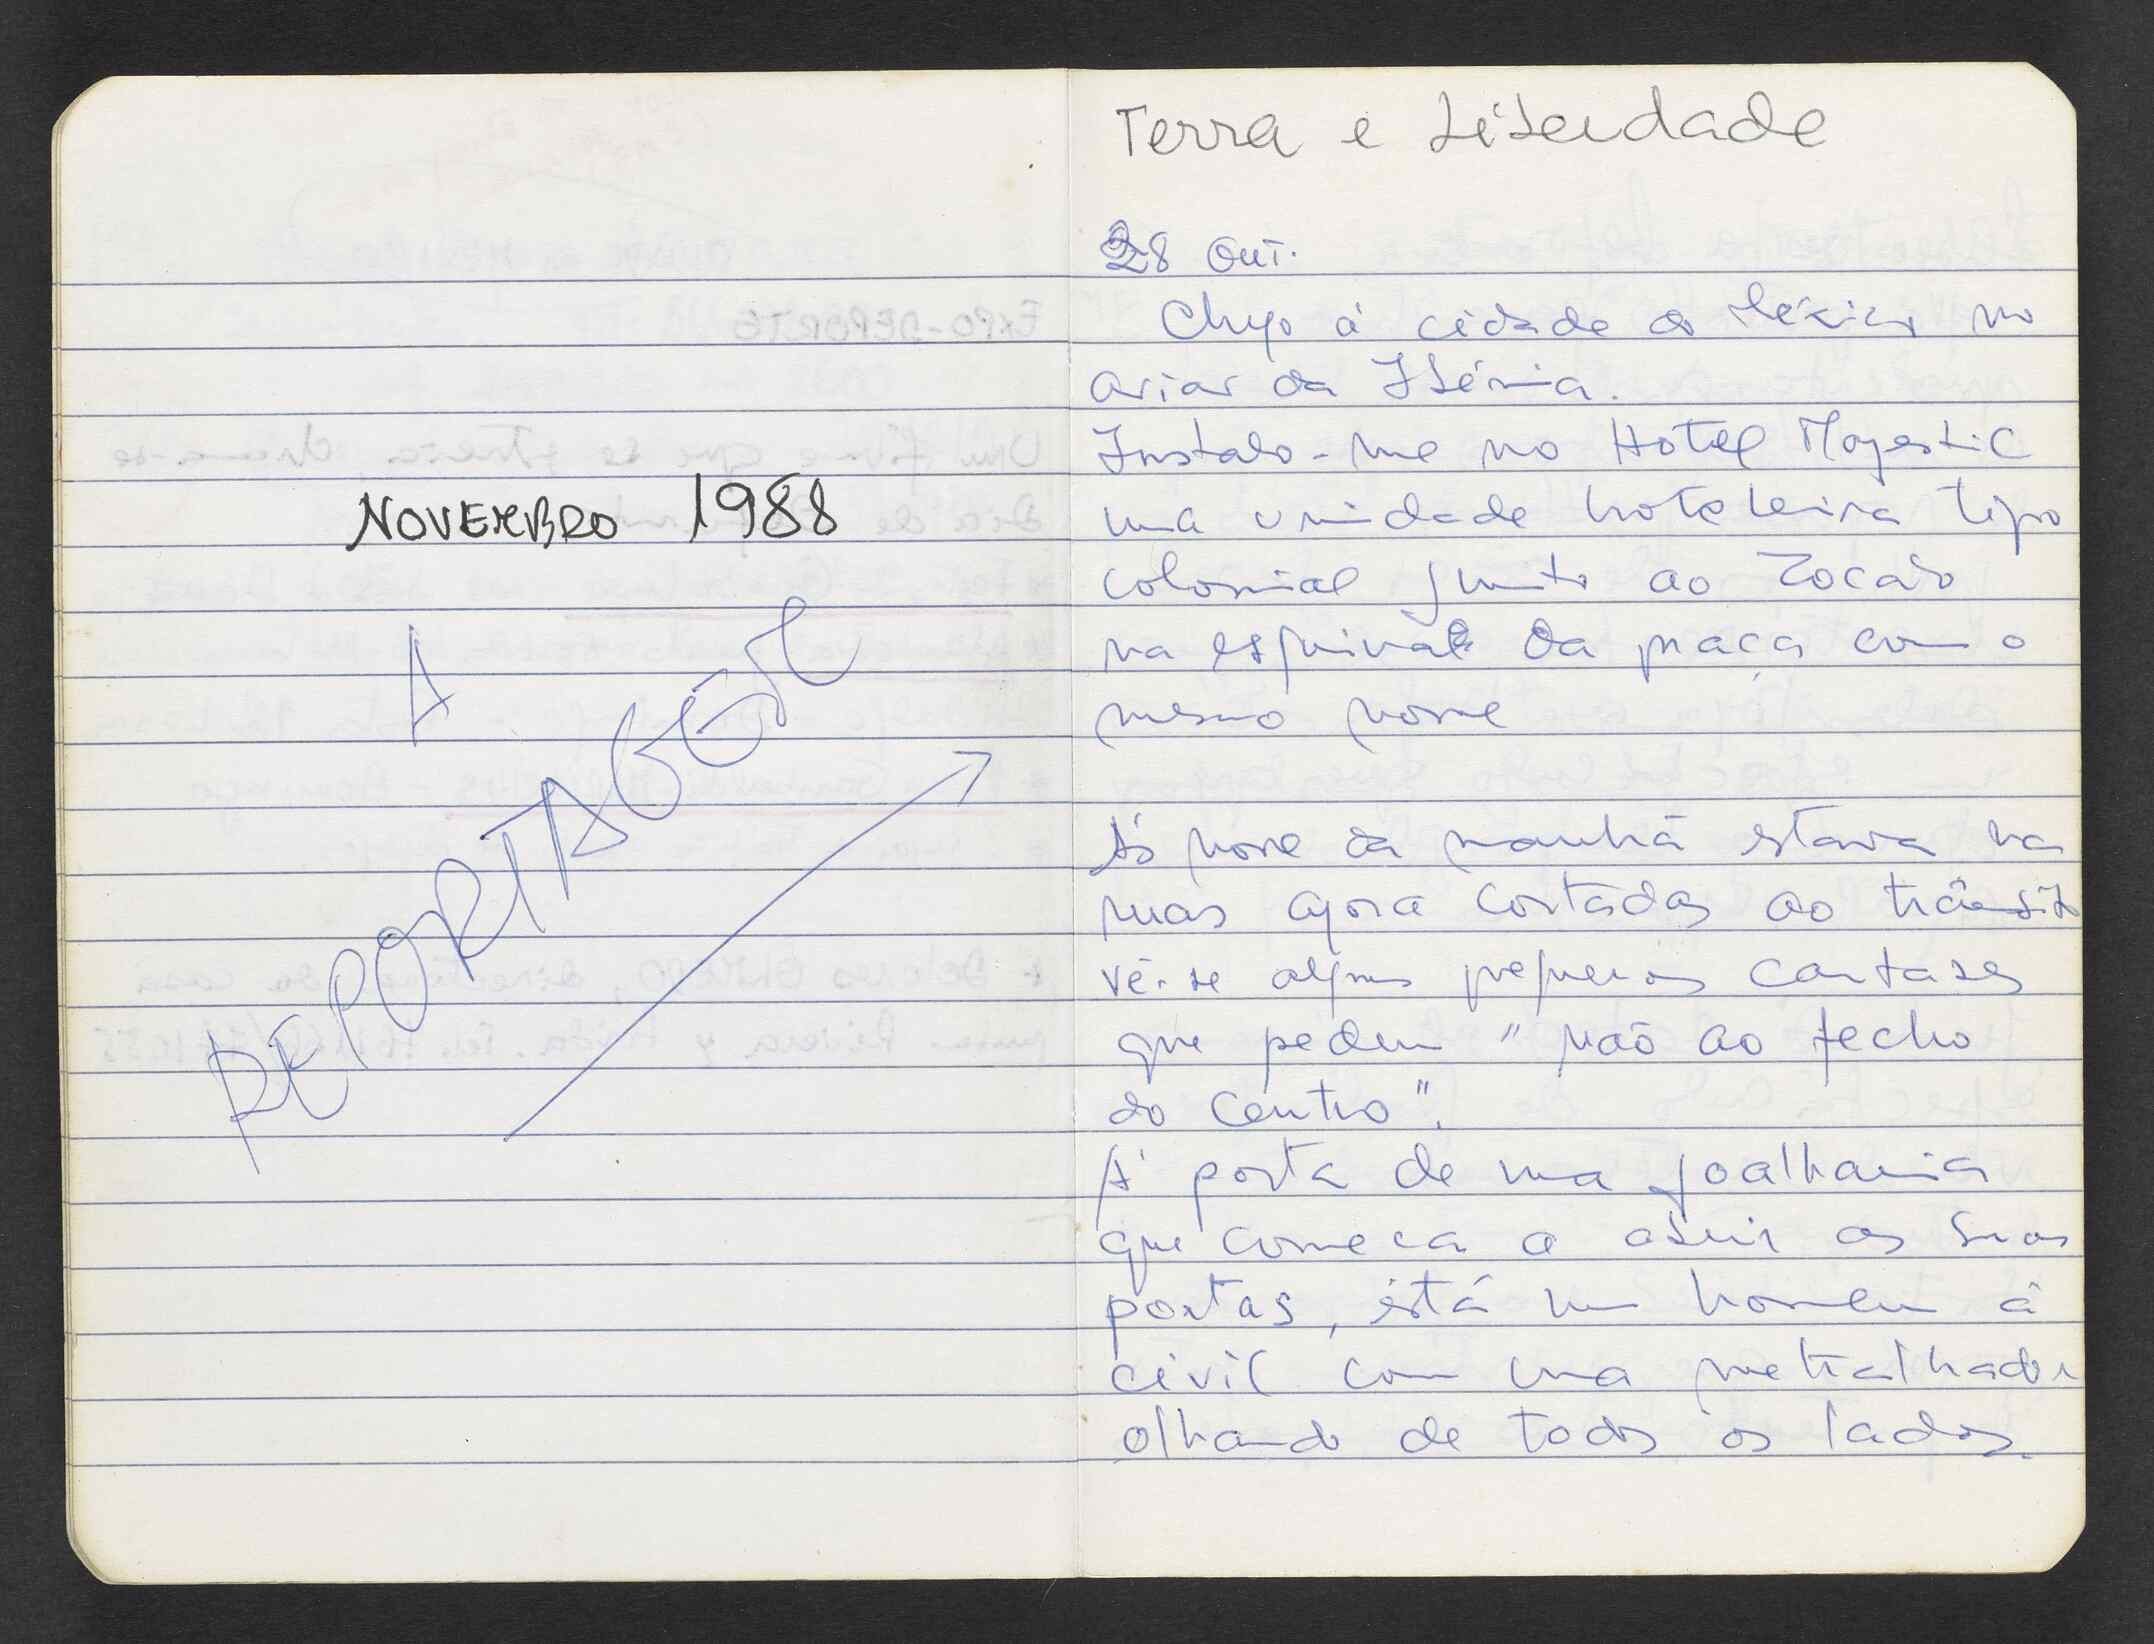 NOVEMBRO 1988
A
REPORTAGEM
Terra e Liberdade
28 OUT.
Chego à cidade do México no
aviar da Ibéria.
Instalo-me no Hotel Majestic
uma unidade hoteleira tipo
colonial junto ao Zocalo
na esquina da praça com o
mesmo nome
Às nove da manhã estava na
ruas agora cortadas ao trânsito
vê-se alguns pequenos cartazes
que pedem "não ao fecho
do centro".
À porta de uma joalharia
que começa a abrir as suas
portas, está um homem à
civil com uma metralhadora
olhando de todos os lados.